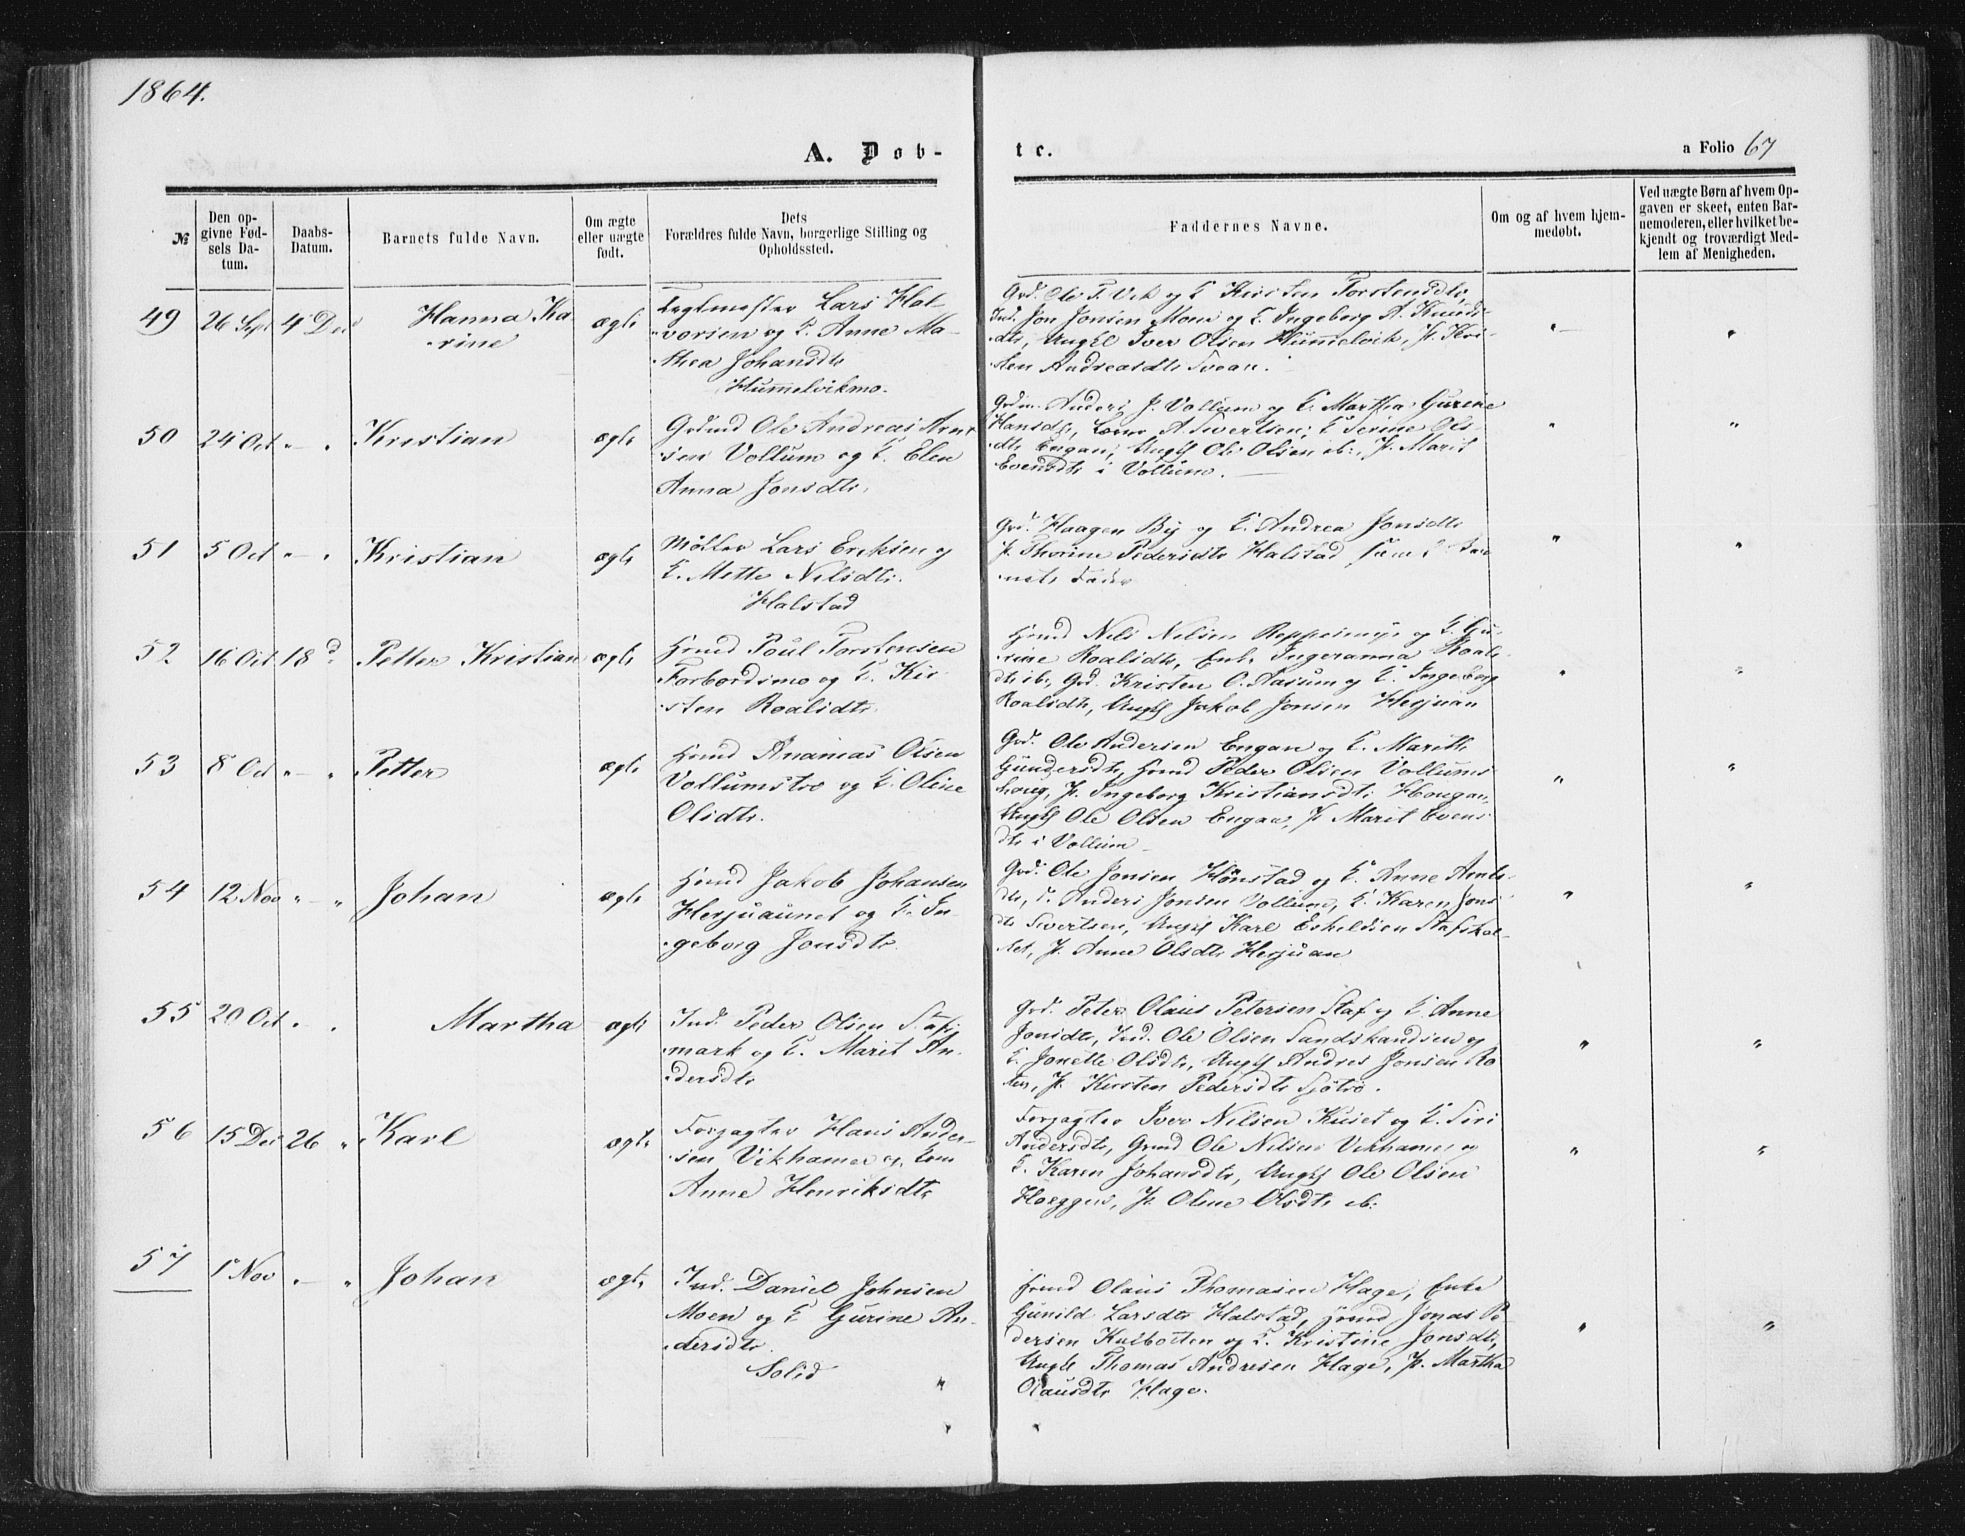 1864.
A. Døb-
te.
a Folio 67
№
Den op-
givne Fød-
sels Da-
tum.
Daabs-
Datum.
Barnets fulde Navn.
Om ægte
eller uægte
født.
Dets
Forældres fulde Navn, borgerlige Stilling og
Opholdssted.
Faddernes Navne.
Om og af hvem hjem-
medøbt.
Ved uægte Børn af hvem Op-
gaven er skeet, enten Bar-
nemoderen, eller hvilket be-
kjendt og troværdigt Med-
lem af Menigheden.
49
26 Sept
4 Dec
Hanna Ka-
rine
ægte
Lægtmester Lars Hal-
vorsen og K. Anne Ma-
thea Johansdtr
Hummelvikmo.
Grd. Ole T. Vik og K. Kirsten Torstensdtr,
Ind. Jon Jonsen Moen og K. Ingeborg A. Knuds-
dtr, Ungk Iver Olsen Hummelvik, P. Kir-
sten Andreasdtr Svean.
50
24 Oct
" — "
Kristian
ægte
Grdmd Ole Andreas Arnt-
sen Vollum og K. Elen
Anna Jonsdtr.
Grdm. Anders J. Vollum og K. Martha Gurine
Hansdtr, A. Sivertsen, K Serine Ols-
dtr Engan, Ungk Ole Olsen ib:, P. Marit
Evensdtr i Vollum.
51
5 Oct
" — "
Kristian
ægte
Møller Lars Eriksen og
K. Mette Nilsdtr.
Halstad
Grd. Haagen By og K. Andrea Jonsdtr
P. Thorine Pedersdtr Halstad samt Bar-
nets Fader
52
16 Oct
18 d.
Petter Kristian
ægte
Hmd Poul Torstensen
Forbordsmo og K. Kir-
sten Roaldsdtr.
Hmd Nils Nilsen Reppesmyr og K. Gu-
rine Roaldsdtr, Enke Ingeranna Roals-
dtr ib:, Grd. Kristen O. Aasum og K. Ingeborg
Roaldsdtr, Ungk Jakob Jonsen Herjuan
53
8 Oct
" — "
Petter
ægte
Hmd Ananias Olsen
Vollumstrø og K. Oline
Olsdtr.
Grd. Ole Andersen Engan og K. Marith
Gundersdtr, Hmd Peder Olsen Vollums
houg, P. Ingeborg Kristiansdtr Hougan,
Ungk Ole Olsen Engan, P Marit Evens-
dtr i Vollum
54
12 Nov
" — "
Johan
ægte
Hmd Jakob Johansen
Herjuaunet og K. In-
geborg Jonsdtr.
Grd. Ole Jonsen Hønstad og K. Anne Arnts-
dtr, Anders Jonsen Vollum, K. Karen Jons-
dtr Sivertsen, Ungk Karl Eskeldsen Stafshol-
tet, P. Anne Olsdtr Herjuan
55
20 Oct
" "
Martha
ægte
Ind. Peder Olsen Staf-
mark og K. Marit An-
dersdtr
Grd. Peter Olaus Petersen Staf og K. Anne
Jonsdtr, Ind. Ole Olsen og
K. Jonette Olsdtr, Ungk Andres Jonsen Ro-
ten, P. Kirsten Pedersdtr Sjøtrø.
56
15 Dec
26 "
Karl
ægte
Forpagter Hans Ander-
sen Vikhamer og Kone
Anne Henriksdtr
Forpagter Iver Nilsen Kuset og K. Siri
Andersdtr, Grmd Ole Nilsen Vikhamer og
K. Karen Johansdtr, Ungk Ole Olsen
Hoeggen, P. Oline Olsdtr ib:
57
1 Nov
" — "
Johan
ægte
Ind. Daniel Johnsen
Moen og K Gurine An-
dersdtr.
Solid
Hmd Olaus Thomasen Hage, Enke
Gunild Larsdtr Halstad, Hmd Jonas Pe-
dersen Kulbotten og K. Kristine Jonsdtr,
Ungk Thomas Andresen Hage, P. Martha
Olausdtr Hage.